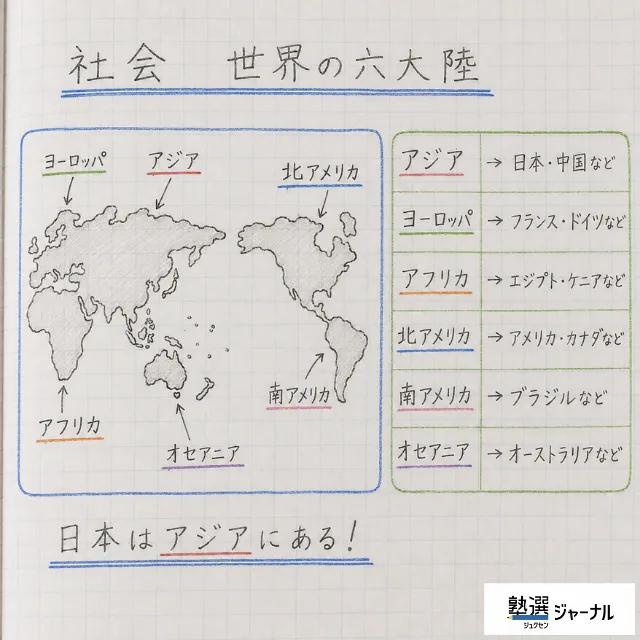 社会 世界の六大陸
ヨーロッパ
アジア
北アメリカ
南アメリカ
アフリカ
オセアニア
アジア → 日本・中国など
ヨーロッパ → フランス・ドイツなど
アフリカ → エジプト・ケニアなど
北アメリカ → アメリカ・カナダなど
南アメリカ → ブラジルなど
オセアニア → オーストラリアなど
日本はアジアにある!
塾選ジャーナル
ジュクセン